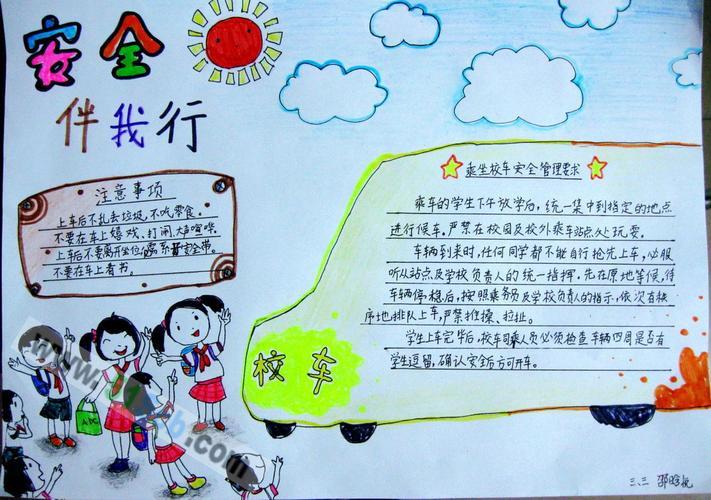 安全
伴我行
注意事项
上车后不扎去垃圾,不吃零食。
不要在车上嬉戏、打闹、大声喧哗。
上车后不要离开坐位,系安全带。
不要在车上看书。
☆乘坐校车安全管理要求☆
乘车的学生下午放学后,统一集中到指定的地点
进行候车。严禁在校园及校外乘车站点处玩耍。
车辆到来时,任何同学都不能自行抢先上车,必服
听从站点及学校负责人的统一指挥,先在原地等候,待
车辆停稳后,按照乘务员及学校负责人的指示,依次有秩
序地排队上车,严禁推搡、拉扯。
学生上车完毕后,校车司乘人员必须检查车辆四周是否有
学生逗留,确认安全后方可开车。
校车
ABC
三、三 邵晗